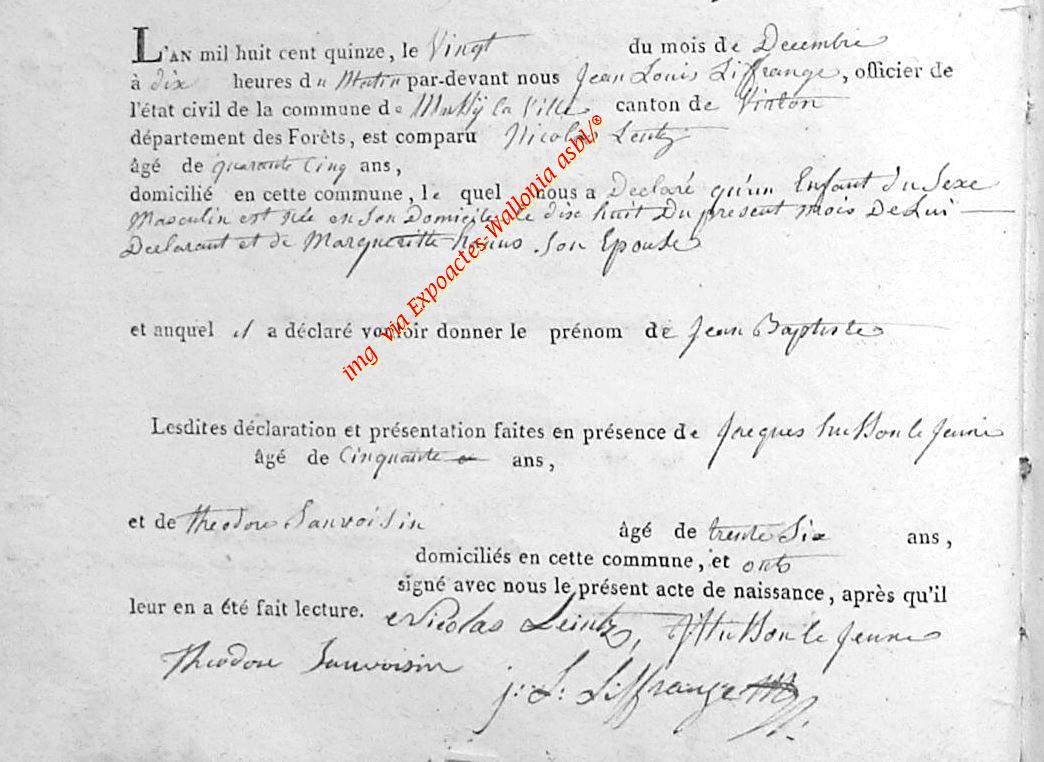 L'AN mil huit cent quinze, le Vingt du mois de Decembre
à dix heures du Matin par-devant nous Jean Louis Liffrange, officier de
l'état civil de la commune de Mussÿ la Ville canton de Virton
département des Forêts, est comparu Nicolas Leintz
âgé de quarante Cinq ans,
domicilié en cette commune, le quel nous a Declaré qu'un Enfant du Sexe
Masculin est née en Son Domicile le dix huit Du present mois De Lui
Declarant et de Margueritte Son Epouse
et auquel il a déclaré vouloir donner le prénom de Jean Baptiste
Lesdites déclaration et présentation faites en présence de Jacques husson le Jeune
âgé de Cinquante ans,
et de Theodore Sauvoisin âgé de trente Six ans,
domiciliés en cette commune, et onts
signé avec nous le présent acte de naissance, après qu'il
leur en a été fait lecture. Nicolas Leintz, J Husson le Jeune
Theodore Sauvoisin
j: L: Liffrange
img via Expoactes-Wallonia asbl/®